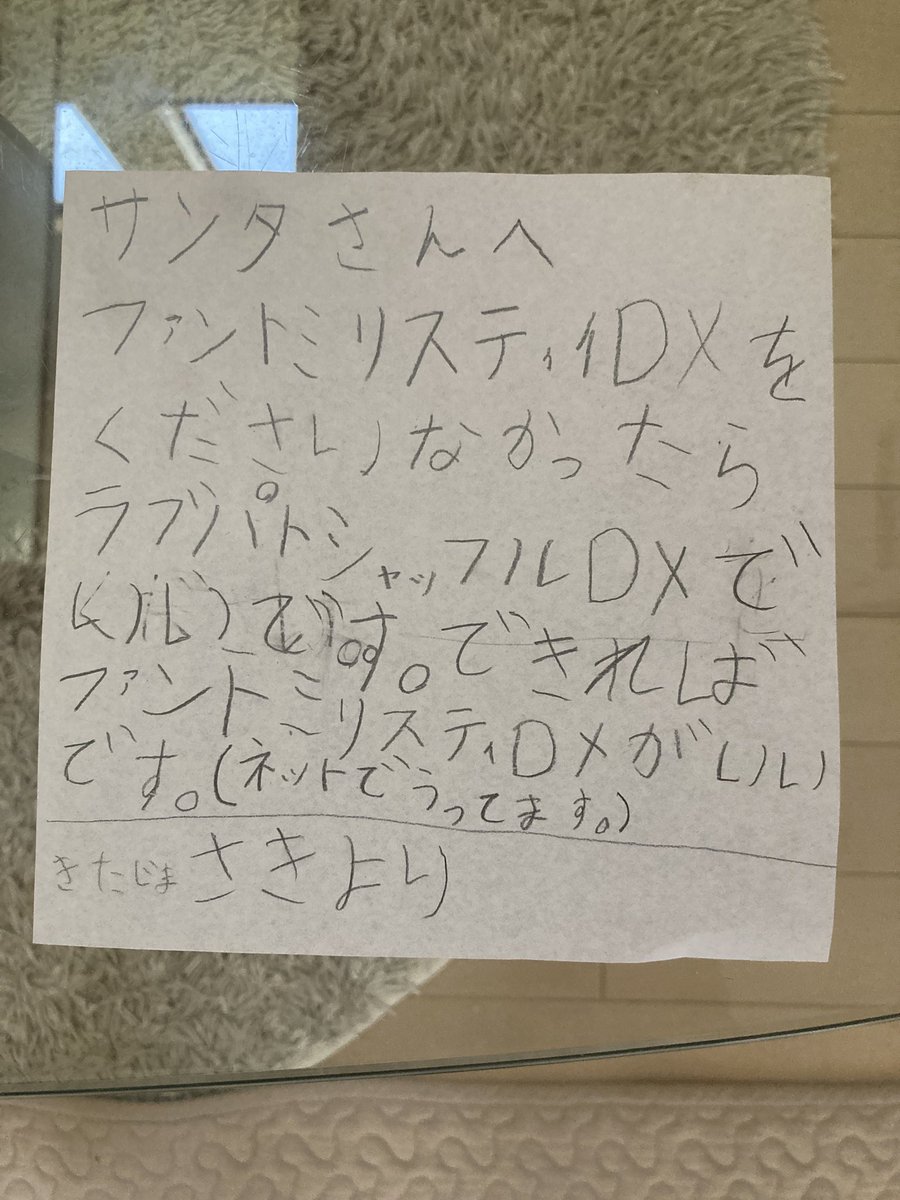 サンタさんへ
ファントミリスティDXを
ください なかったら
ラブパトシャッフルDXで
いいです。できれば
ファントミリスティDXがいい
です。(ネットでうってます。)
きたじま さきより